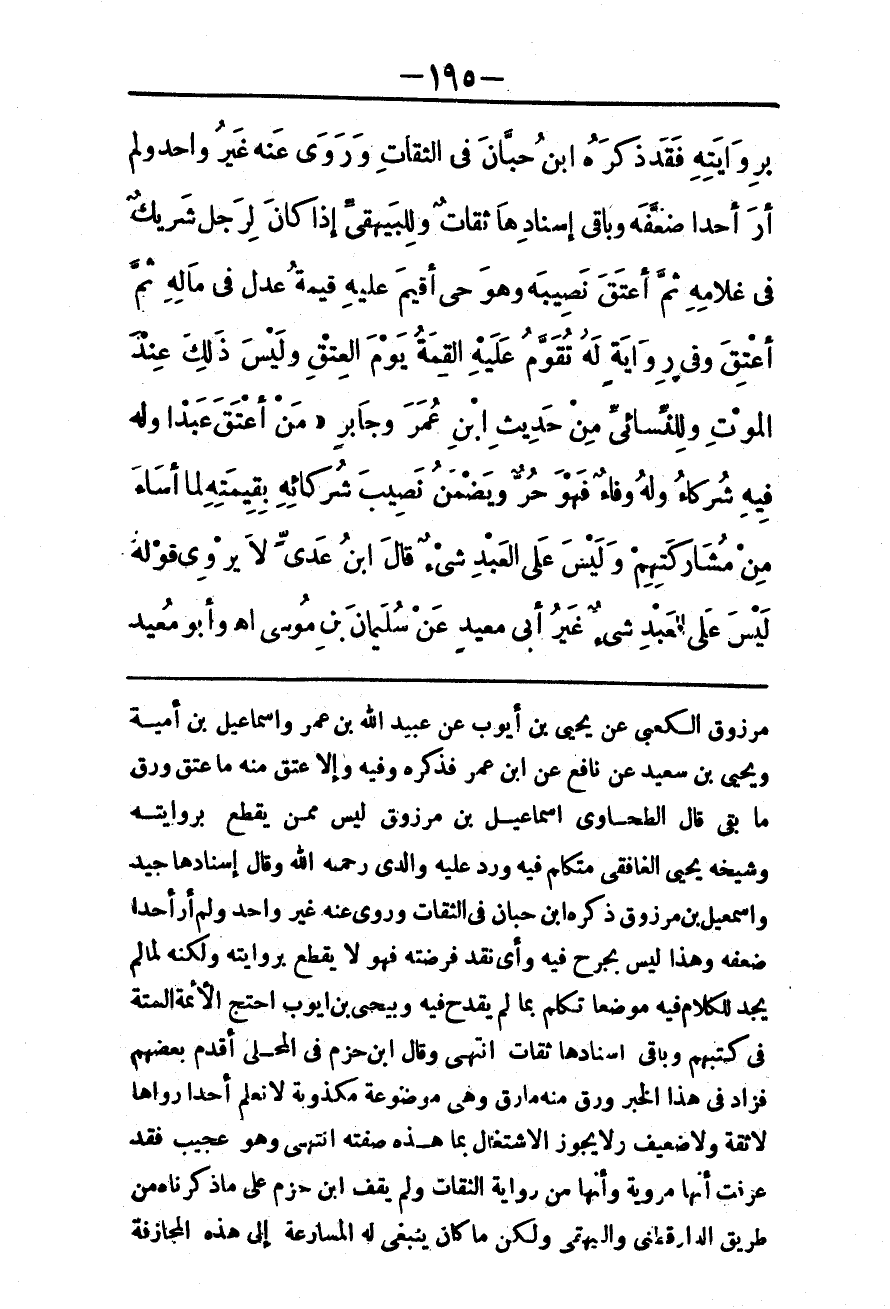 -١٩٥-
بِرِوَايَتِهِ فَقَدْ ذَكَرَهُ ابنُ حِبَّانَ فى الثقاتِ وَرَوَى عَنه غَيرُ واحد ولم
أرَ أحدا ضعَّفَه وباقى إسنادِها ثقاتٌ وللبَيهقىِّ إذا كانَ لِرَجل شَريكٌ
فى غلامِهِ ثمَّ أعتَقَ نَصِيبَه وهوَ حى أقيمَ عليهِ قيمةُ عدل فى مَالِهِ ثمَّ
أعْتِقَ وفى رِوَايَةٍ لَهُ تُقَوَّمُ عَلَيْهِ القِمَةُ يَوْمَ العِتْقِ ولَيْسَ ذَلِكَ عِنْدَ
الموْتِ وللنَّسائىِّ مِنْ حَدِيثِ ابْنِ عُمَرَ وجَابرٍ « مَنْ أعْتَقَ عَبْدا وله
فِيهِ شُركاءُ ولهُ وفاءٌ فَهْوَ حُرٌّ ويَضْمَنُ نَصِيبَ شُرَكائِهِ بِقِيمَتِهِ لما أسَاءَ
مِنْ مُشَارَكَتِهِمْ وَلَيْسَ عَلَى العَبْدِ شىْءٌ قالَ ابنُ عَدىٍّ لاَ يرْوِى قوْلهُ
لَيْسَ عَلَى العَبْدِ شىءٌ غَيرُ أبى معيدٍ عَنْ سُلَيمانَ بنِ مُوسى اه وأبو مُعيد
مرزوق الكعبي عن يحيى بن أيوب عن عبيد الله بن عمر واسماعيل بن أمية
ويحيى بن سعيد عن نافع عن ابن عمر فذكره وفيه وإلا عتق منه ما عتق ورق
ما بقى قال الطحاوى اسماعيل بن مرزوق ليس ممن يقطع بروايته
وشيخه يحيى الغافقى متكلم فيه ورد عليه والدى رحمه الله وقال إسنادها جيد
واسمعيل بن مرزوق ذكره ابن حبان فى الثقات وروى عنه غير واحد ولم أر أحدا
ضعفه وهذا ليس بجرح فيه وأى نقد فرضته فهو لا يقطع بروايته ولكنه لما لم
يجد للكلام فيه موضعا تكلم بما لم يقدح فيه وبيحيى بن ايوب احتج الأئمة الستة
فى كتبهم وباقى اسنادها ثقات انتهى وقال ابن حزم فى المحلى أقدم بعضهم
فزاد فى هذا الخبر ورق منه مارق وهى موضوعة مكذوبة لا نعلم أحدا رواها
لا ثقة ولا ضعيف ولا يجوز الاشتغال بما هذه صفته انتهى وهو عجيب فقد
عرفت أنها مروية وأنها من رواية الثقات ولم يقف ابن حزم على ماذكرناه من
طريق الدارقطنى والبيهقى ولكن ما كان ينبغى له المسارعة إلى هذه المجازفة